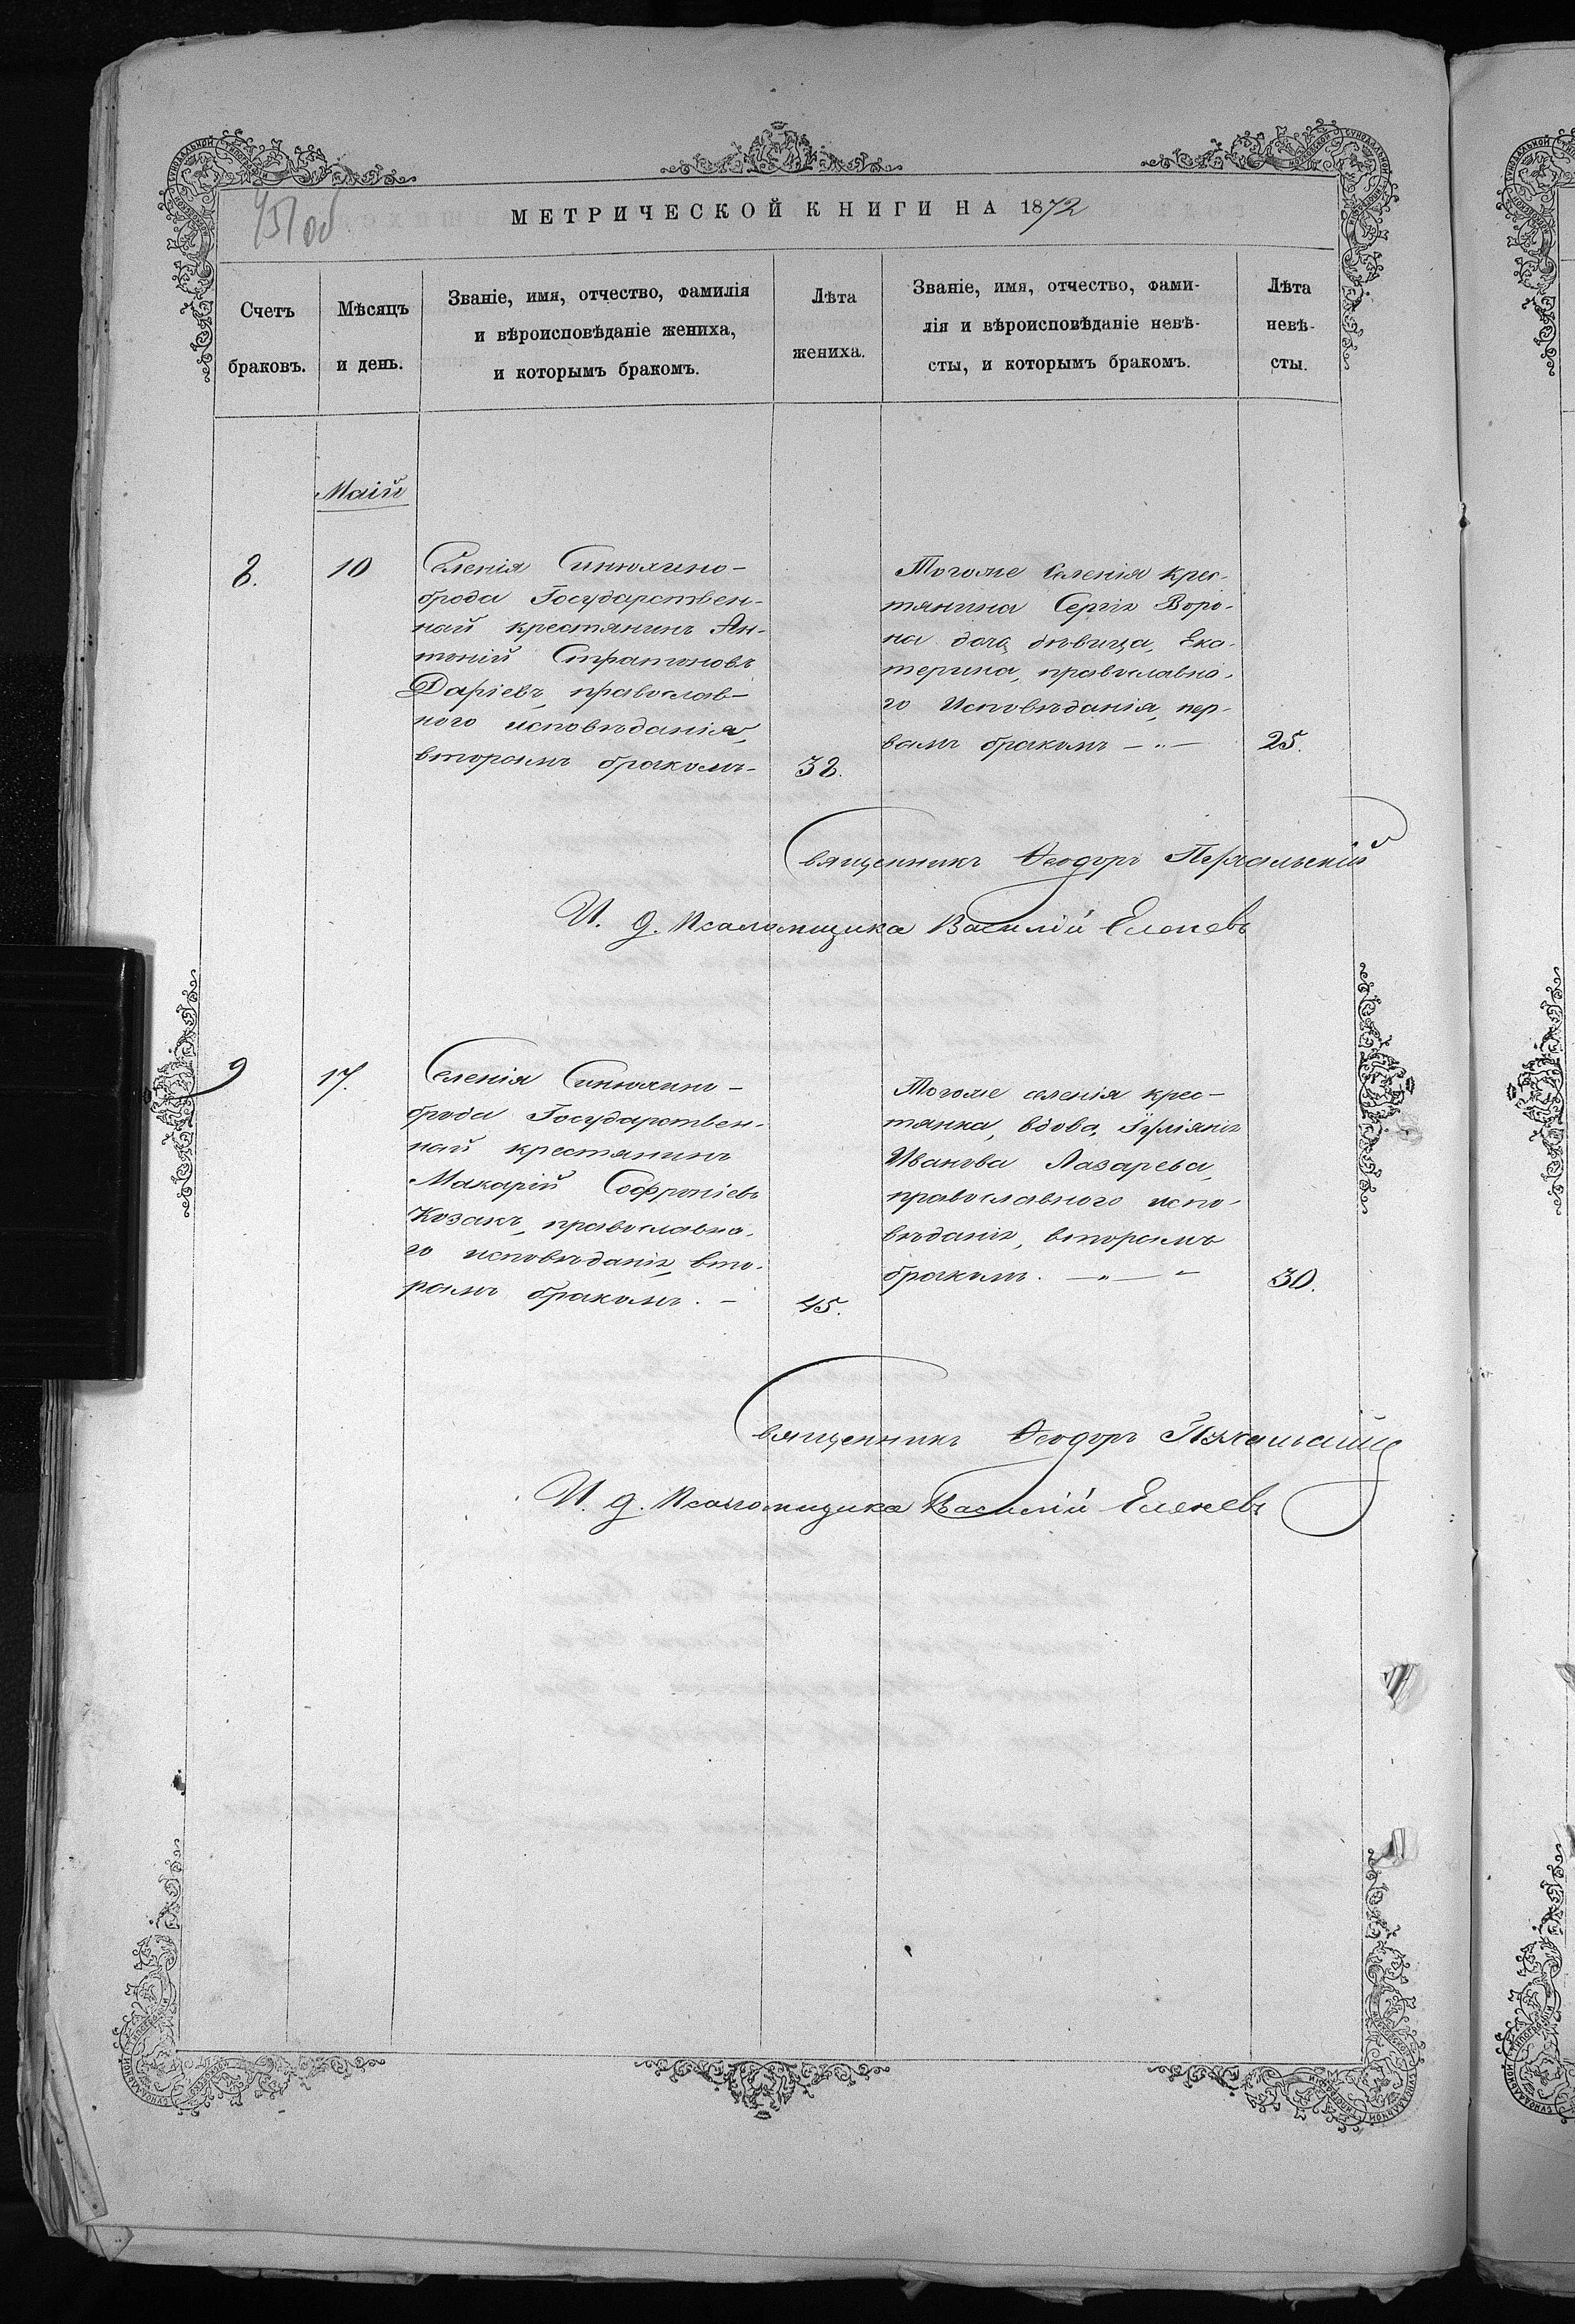 МЕТРИЧЕСКОЙ КНИГИ НА 1872
Счетъ браковъ.
Мѣсяцъ и день.
Званіе, имя, отчество, фамилія
и вѣроисповѣданіе жениха,
и которымъ бракомъ.
Лѣта жениха.
Званіе, имя, отчество, фами-
лія и вѣроисповѣданіе невѣ-
сты, и которымъ бракомъ.
Лѣта невѣ-
сты.
Маій
8.
10
Селенія Синюхино-
брода Государствен-
ный крестянинъ Ан-
тоній Стратоновъ
Даріевъ, православ-
ного исповѣданія,
вторымъ бракомъ-
38.
Тогоже Селенія крес-
тянина Сергія Воро-
на дочь дѣвица, Ека-
терина, православно-
го Исповѣданія, пер-
вымъ бракомъ — „ —
25.
Священникъ Ѳеодоръ
И. д. Псаломщика Василій Еленевъ
9
17.
Селенія Синюхино-
брода Государствен-
ный крестянинъ
Макарій Софроніевъ
Козакъ, православно-
го исповѣданія, вто-
рымъ бракомъ. —
45.
Тогоже селенія крес-
тянка, вдова, Іуліянія
Иванова Лазарева,
православного испо-
вѣданія, вторымъ
бракомъ. — „ — „
30.
Священникъ Ѳеодоръ
И. д. Псаломщика Василій Еленевъ